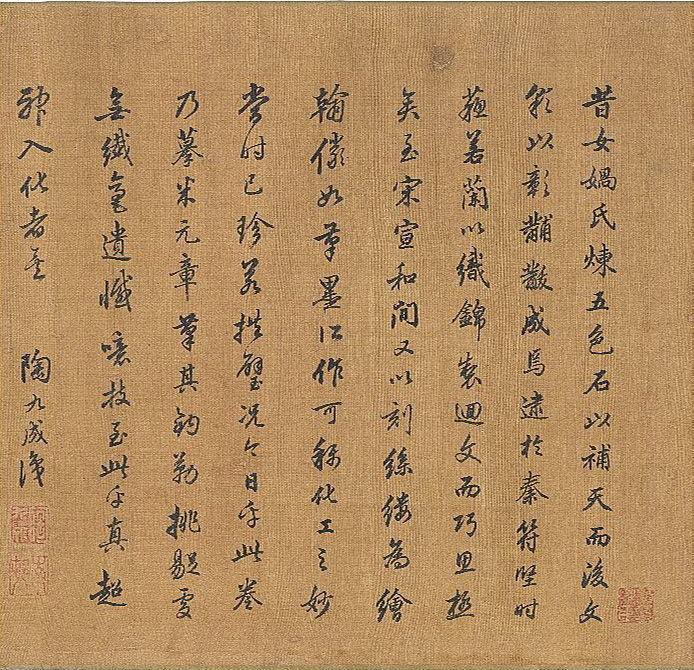 昔女媧氏煉五色石以補天而後文
彩以彰黼黻成焉逮於秦符堅時
蘇若蘭以織錦製迴文而巧思極
矣至宋宣和間又以刻絲縷為繪
翰儼如筆墨所作可稱化工之妙
當時已珍若拱璧況今日乎此卷
乃摹米元章筆其鈎勒挑剔處
無纖毫遺憾噫技至此乎真超
神入化者矣 陶九成識